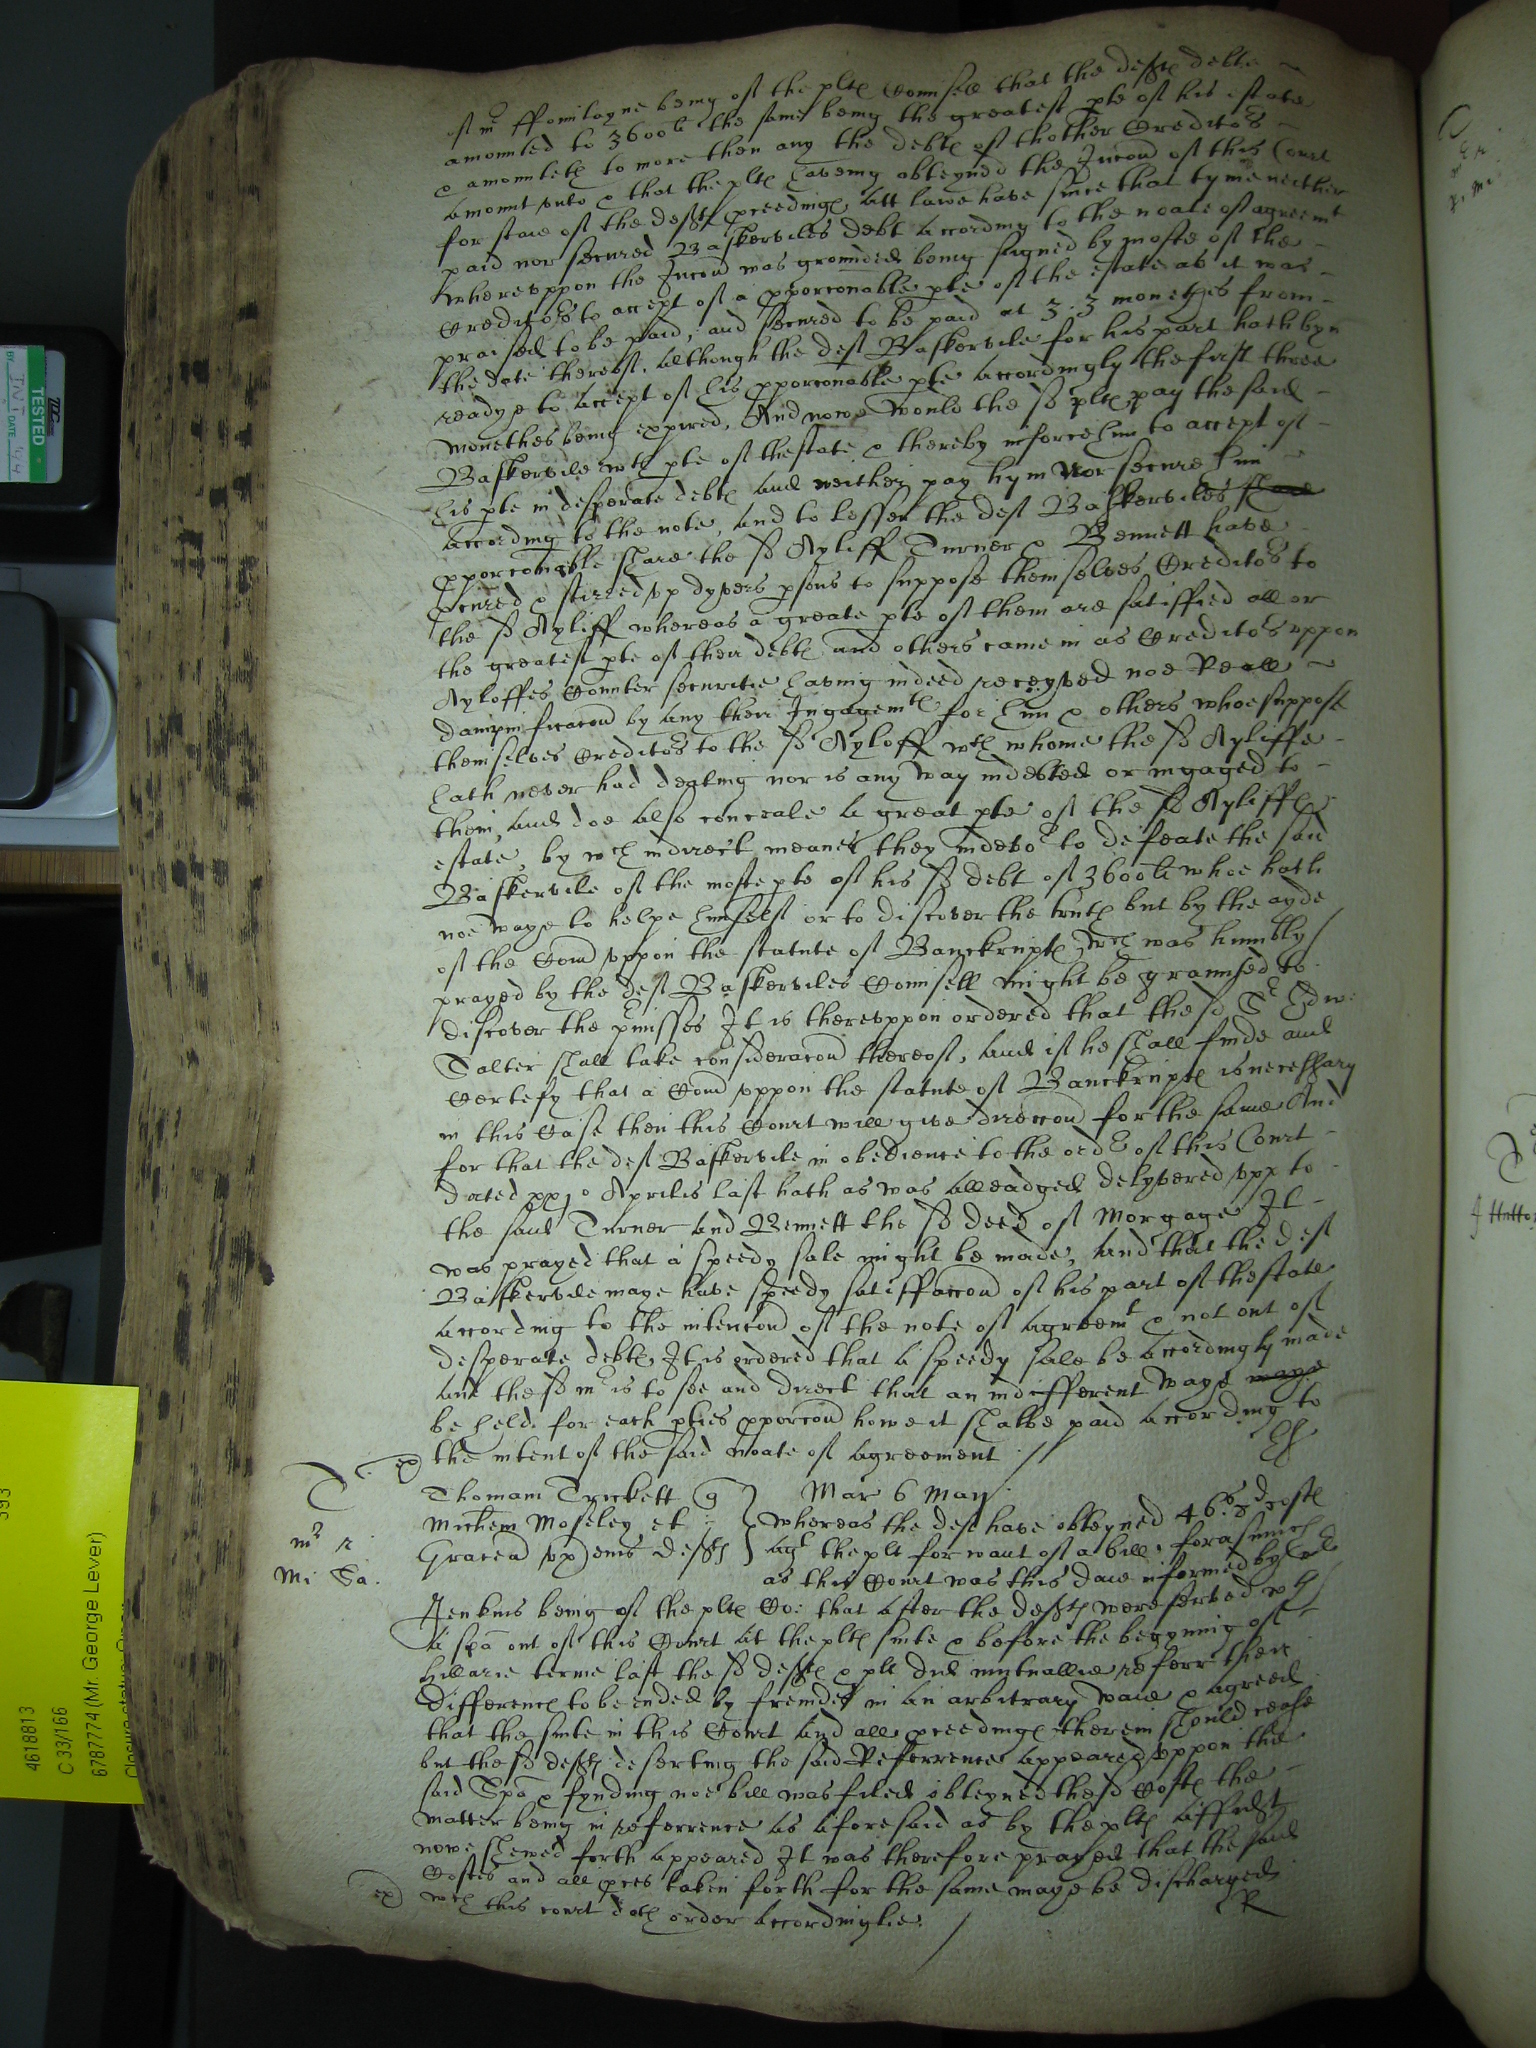 of mr ffountayne being of the plts Counsell that the defts debte
amounted to 3600li the same being the greatest pte of his estate
& amounteth to more then any the debts of thother Creditors
amount vnto & that the plts haveing obteyned the Iniuncon of this Court
for staie of the defts proceedings att lawe have since that tyme neither
paid nor secured Baskerviles debt according to the noate of agreemt
wherevppon the Iniuncon was grounded being signed by moste of the
Creditors to accept of a pporconable pte of the estate as it was
praised to be paid, and secured to be paid at 3. 3 monethes from
the date thereof. Although the deft Baskervile for his part hath byn
readye to accept of his pporconable pte accordingly the first three
monethes being expired. And nowe would the sd plts pay the said
Baskervile wth pte of thestate & thereby inforce him to accept of
his pte in desperate debts and neither pay hym nor secure him
according to the note, and to lessen the deft Baskerviles share
pporconable share the sd Ayliff Turner & Bennett have
pcured & stirred vp dyvers psons to suppose themselves Creditors to
the sd Ayliff whereas a greate pte of them are satisfied all or
the greatest pte of their debts and others came in as Creditors vppon
Ayloffes Counter securitie having indeed receyved noe Reall
dampnificacon by any their Ingagemts for him & others whoe suppose
themselves Creditors to the sd Ayloff wth whome the sd Ayliffe
hath never had dealing nor is any way indebted or ingaged to
them, and doe also conceale a great pte of the sd Ayliffes
estate, by wch indirect meanes they indevor to defeate the said
Baskervile of the moste pte of his sd debt of 3600li whoe hath
noe waye to helpe himself or to discover the truth but by the ayde
of the Comd vppon the statute of Banckrupts wch was humbly
prayed by the deft Baskerviles Counsell might be graunted to
discover the pmisses It is therevppon ordered that the sd Sr Edw:
Salter shall take consideracon thereof, and if he shall finde and
Certefy that a Comd vppon the statute of Banckrupts is necessary
in this Case then this Court will give direccon for the same And
for that the deft Baskervile in obedience to the order of this Court
dated xxjo Aprilis last hath as was alleadged delyvered vpp to
the said Turner and Bennett the sd deed of Morgage It
was prayed that a speedy sale might be made, and that the deft
Baskervile maye have speedy satisfaccon of his part of thestate
according to the intencon of the note of agreemt & not out of
desperate debts, It is ordered that a speedy sale be accordingly made
and the sd mr is to see and direct that an indifferent waye waye
be held for each pties pporcon howe it shalbe paid according to
the intent of the said noate of agreement
T
ex
Thomam Trickett q
Mar 6 May
Michem Moseley et
Graciad vxem eius defts
mr r
Mi Sa.
whereas the deft have obteyned 46s 8d costs
agt the plt for want of a bill, forasmuch
as this Court was this daie informed by
Jenkins being of the plts Co: that after the defts were served wth
a spa out of this Court at the plts suite & before the begynning of
hillarie terme last the sd defts & plt did mutuallie referr their
differences to be ended by freindes in an arbitrary waie & agreed
that the suite in this Court and all proceedings therein should cease
but the sd defts deserting the said Referrence appeared vppon the
said Spa & fynding noe bill was filed obteyned the sd Costs the
matter being in referrence as aforesaid as by the plts affidt
nowe shewed forth appeared It was therefore prayed that the said
Costes and all pces taken forth for the same maye be discharged
ex
wch this court doth order accordinglie.
CR
TESTED
DATE
4618813
C 33/166
6787774 (Mr. George Lever)